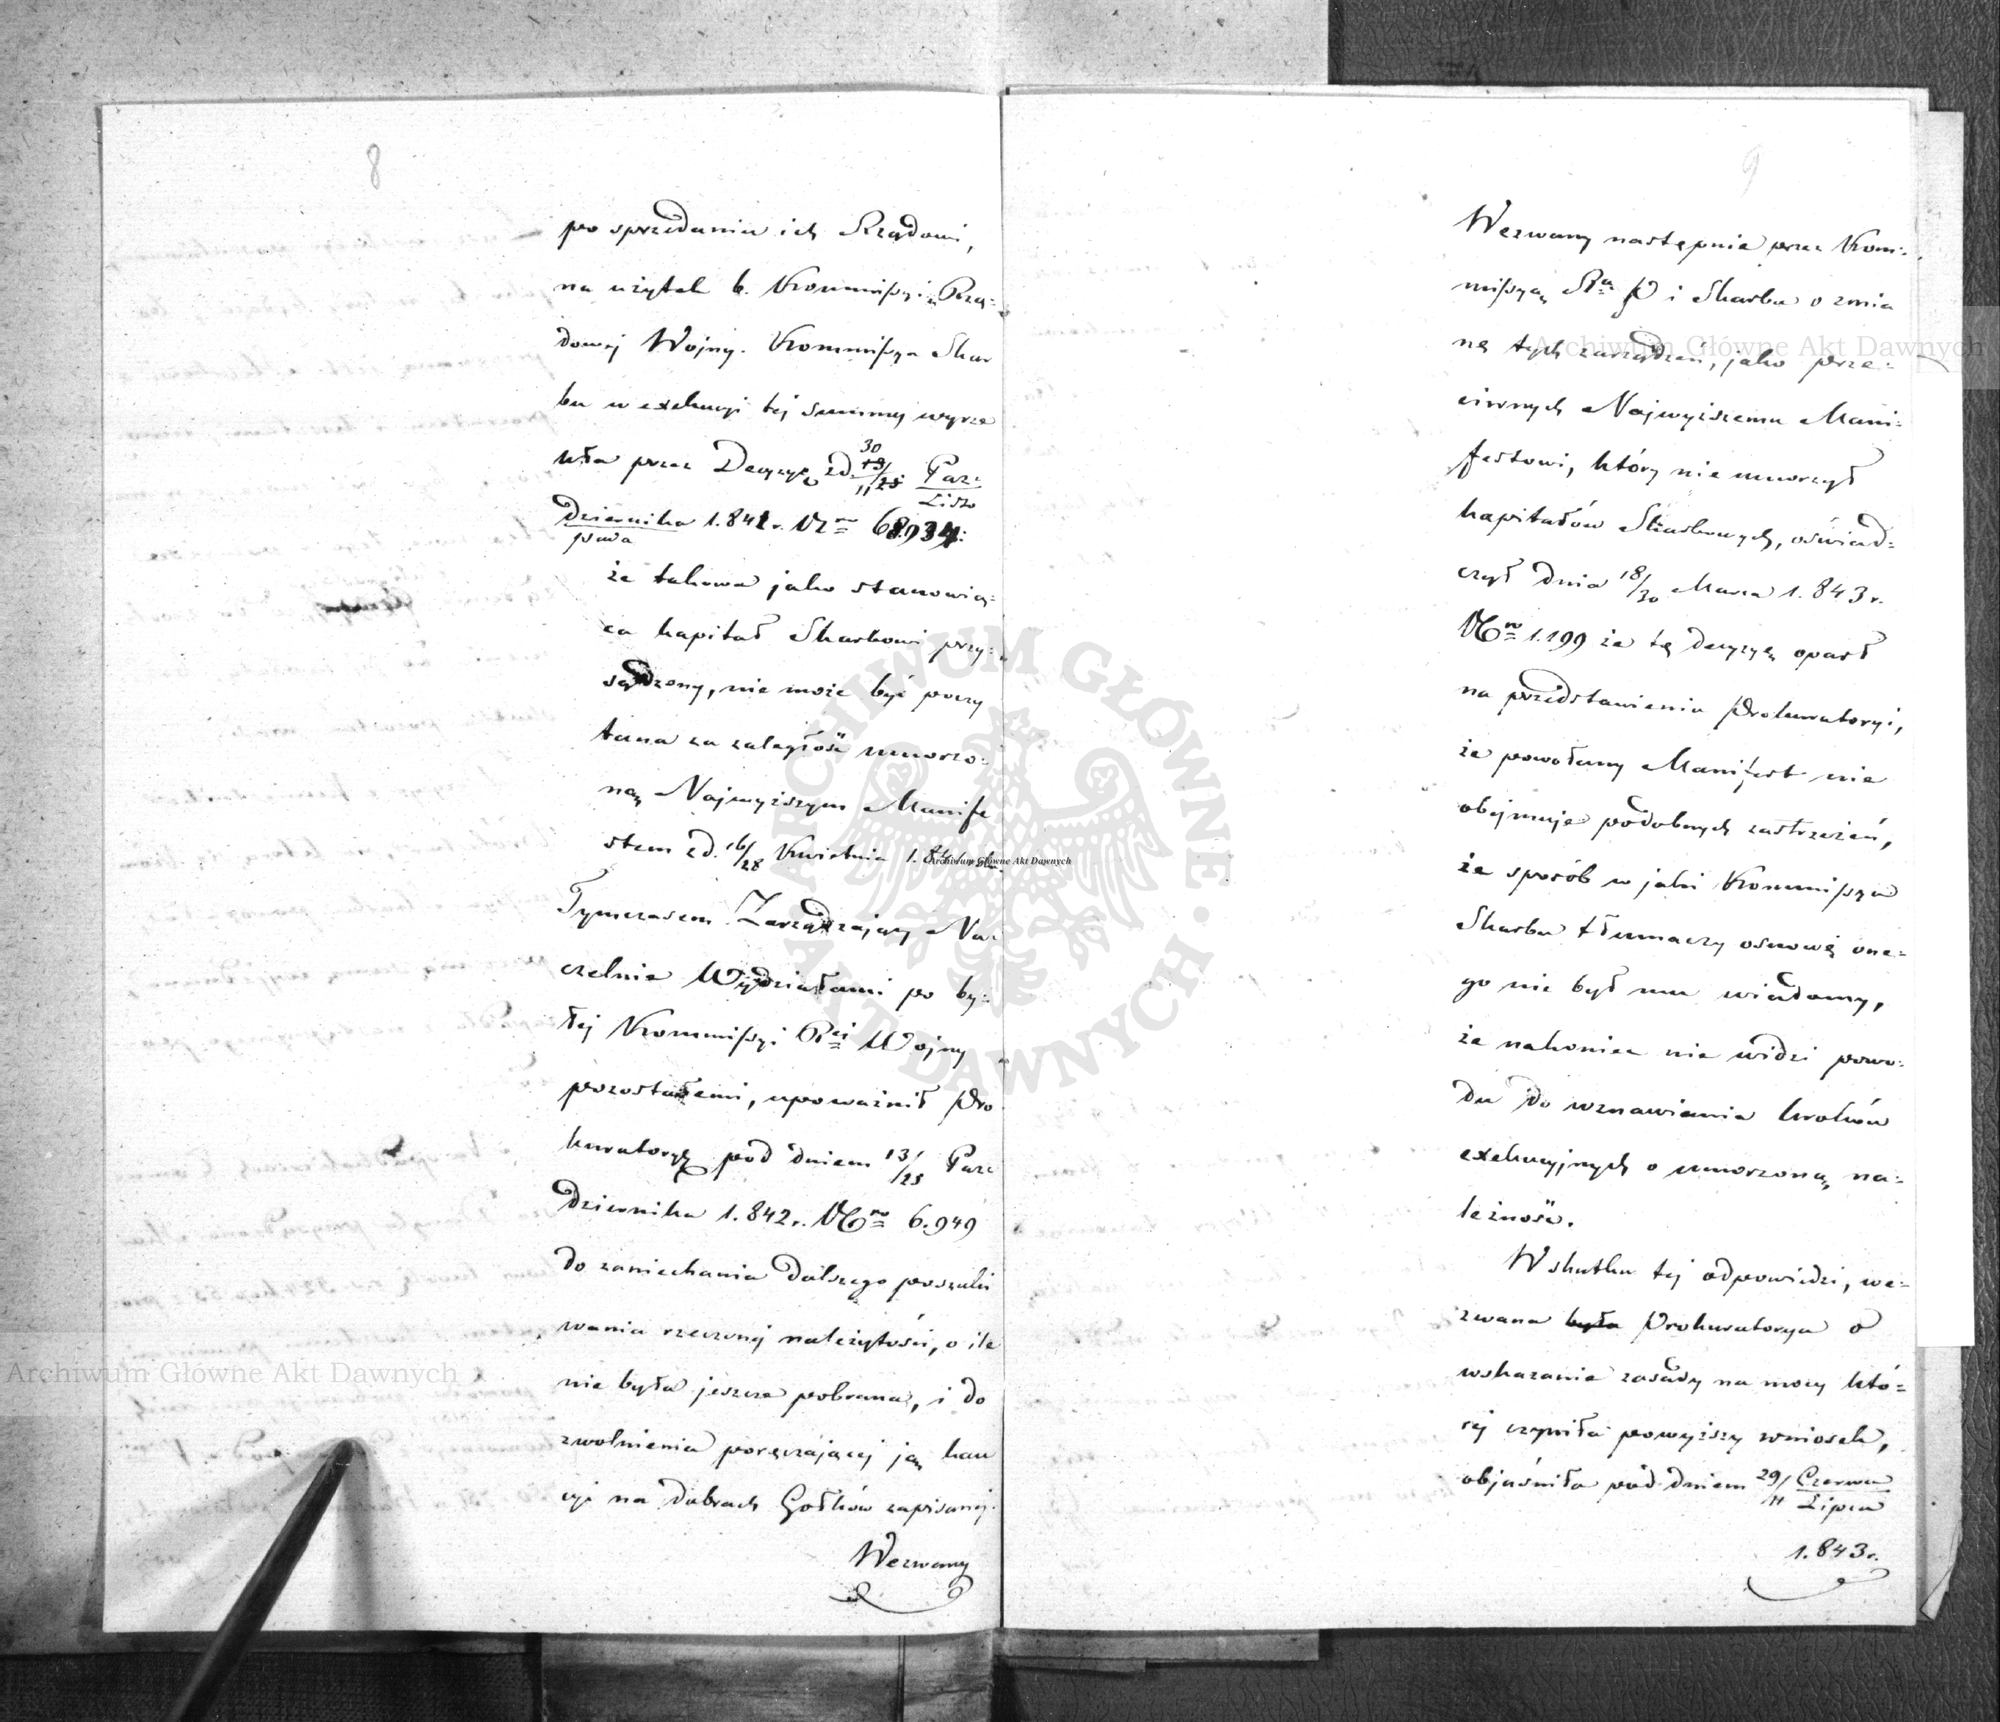 8
po sprzedaniu ich Rządowi,
na użytek b. Kommissyi Rzą=
dowej Wojny. Kommissya Skar
bu w exekucyi tej summy wyrze
kła przez Decyzyę z d. 30/11 Paz=
Listo
dziernika 1.842 r. Nro 68.934:
pada
że takowa jako stanowią=
ca kapitał Skarbowi przy=
sądzony, nie może być poczy
tana za zaległość umorzo=
ną Najwyższym Manife
stem z d. 16/28 Kwietnia
Tymczasem Zarządzający Na=
czelnie Wydziałami po by=
łej Kommissyi Rei Wojny
pozostałemi, upoważnił Pro
kuratoryę pod dniem 13/25 Paz=
dziernika 1.842 r. Nro 6.949
do zaniechania dalszego poszuki
wania rzeczonej należytości, o ile
nie była jeszcze pobrana, i do
zwolnienia poręczającej ją kau
cyi na dobrach Gołków zapisanej.
Wezwany
9
Wezwany następnie przez Kom=
missyą Rą P i Skarbu o zmia
nę tych zarządzeń, jako prze=
ciwnych Najwyższemu Mani=
festowi, który nie umorzył
kapitałów Skarbowych, oświad=
czył dnia 18/30 Marca 1.843 r.
Nro 1.199 że tę decyzyę oparł
na przedstawieniu Prokuratoryi,
że powołany Manifest nie
obejmuje podobnych zastrzeżeń,
że sposób w jaki Kommissya
Skarbu tłumaczy osnowę one=
go nie był mu wiadomy,
że nakoniec nie widzi powo=
du do wznawiania kroków
exekucyjnych o umorzoną na=
leżność.
W skutku tej odpowiedzi, we=
zwana była Prokuratorya o
wskazanie zasady na mocy któ=
rej czyniła powyższy wniosek,
objaśniła pod dniem 29/11 Czerwca
Lipca
1.843 r.
Archiwum Główne Akt Dawnych
Archiwum Główne Akt Dawnych
Archiwum Główne Akt Dawnych
ARCHIWUM GŁÓWNE AKT DAWNYCH